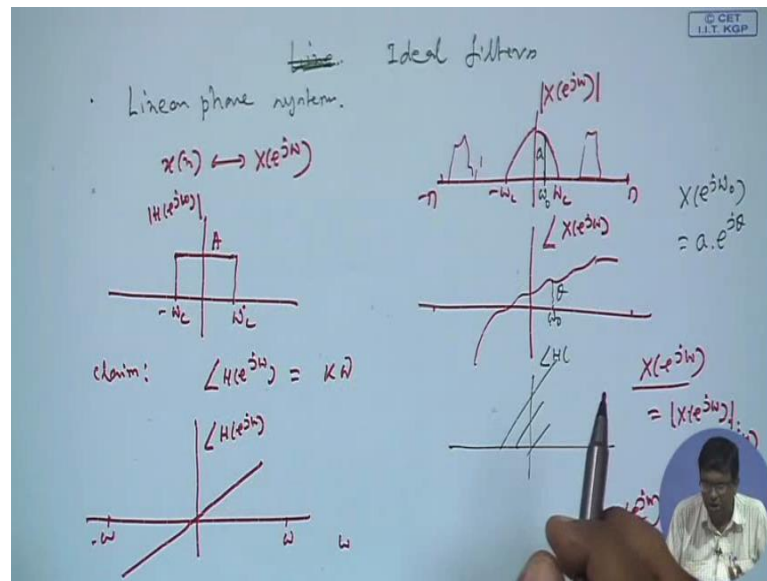 © CET
I.I.T. KGP
Line Ideal filters
Linear phase system.
x(n) ⟷ X(e^{jω})
|H(e^{jω})|
A
-ω_c ω_c
Claim: ∠H(e^{jω}) = Kω
∠H(e^{jω})
-ω ω ω
|X(e^{jω})|
a
-π -ω_c ω_0 ω_c π
X(e^{jω_0})
= a.e^{jθ}
∠X(e^{jω})
θ
ω_0
∠H(
X(e^{jω})
= |X(e^{jω})|